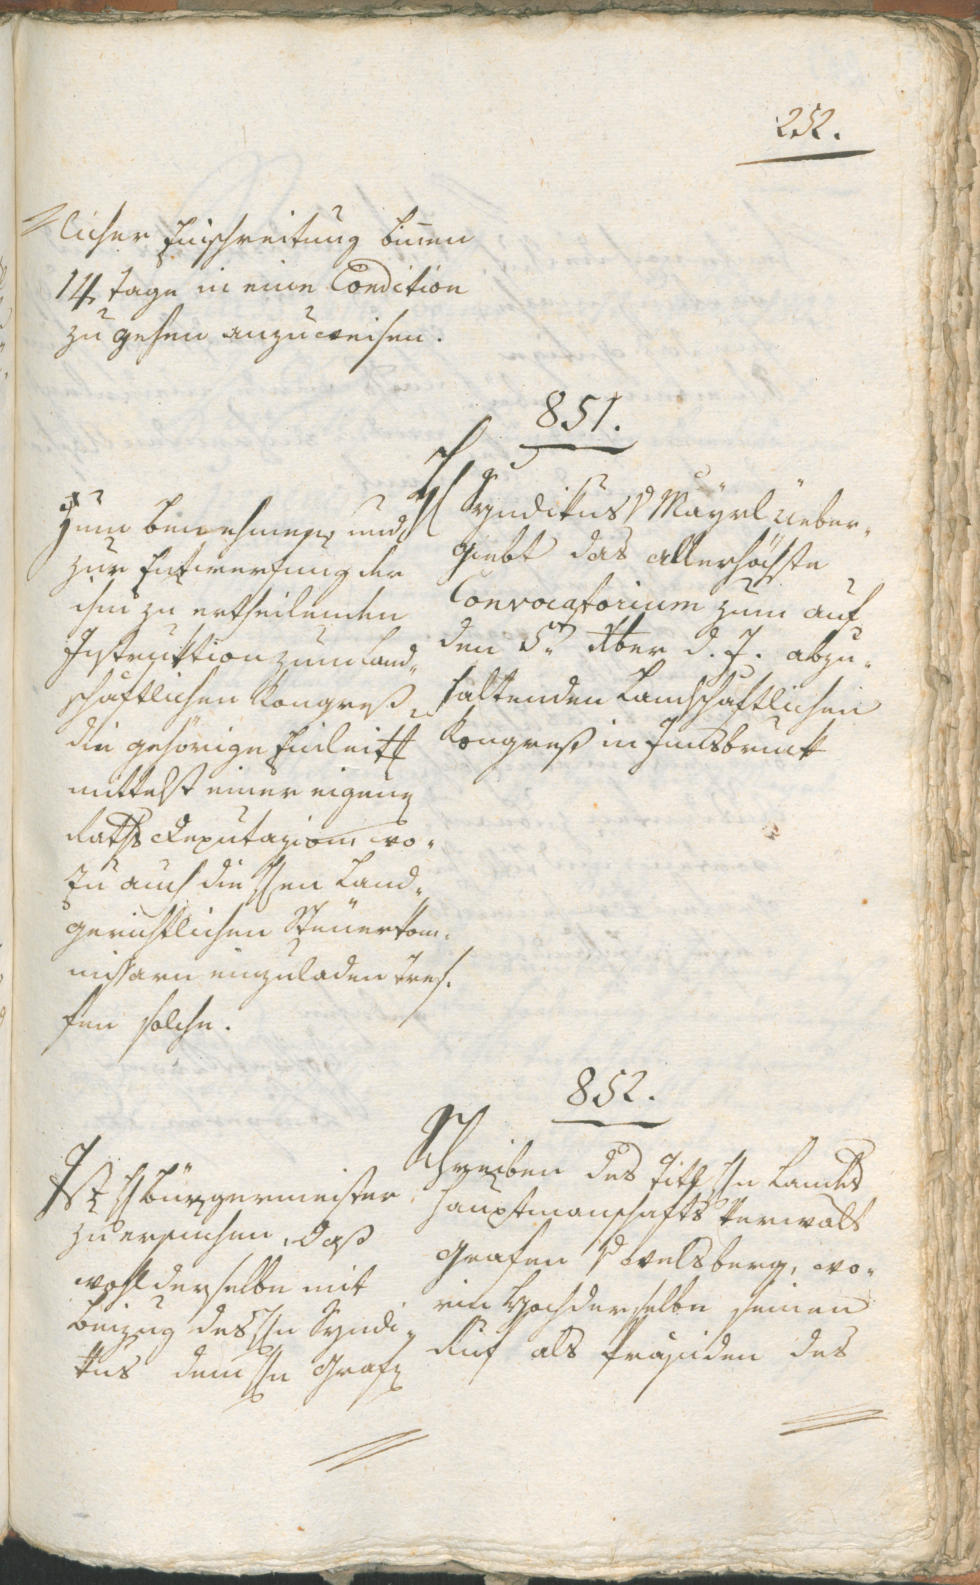 252.
licher Einschreitung binnen
14 Tage in eine Condition
zu gehen anzuweisen.
851.
Zum Benehmen und
zur Entwerfung der
ihm zu ertheilenden
Instruktion zum Land„
schaftlichen Kongreß
die gehörige Einleitt
mittelst einer eigenen
Raths Deputazion, wo„
zu auch die Hhen Land„
gerichtlichen Steuerkom„
missarn einzuladen
solche.
H Syndikus v Mäyrl Ueber„
giebt das allerhöchste
Convocatorium zum auf
den 5t Xber d. J. abzu„
haltenden Landschaftlichen
Kongreß in Innsbruck
852.
Ist H Bürgermeister
zu ersuchen, daß
wohlderselbe mit
Beizug des Hn Syndi„
kus dem Hn Grafen
Schreiben des Titl Hn Landes
hauptmanschafts Verwalt
Grafen v Welsberg, wo„
rin Hochderselbe seinen
Ruf als Präsiden des